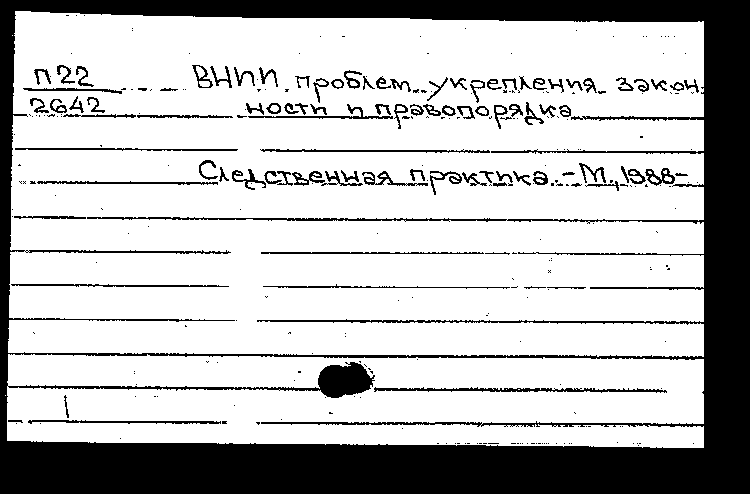 П22
2642
ВНИИ проблем укрепления закон-
ности и правопорядка
Следственная практика. - М., 1988-